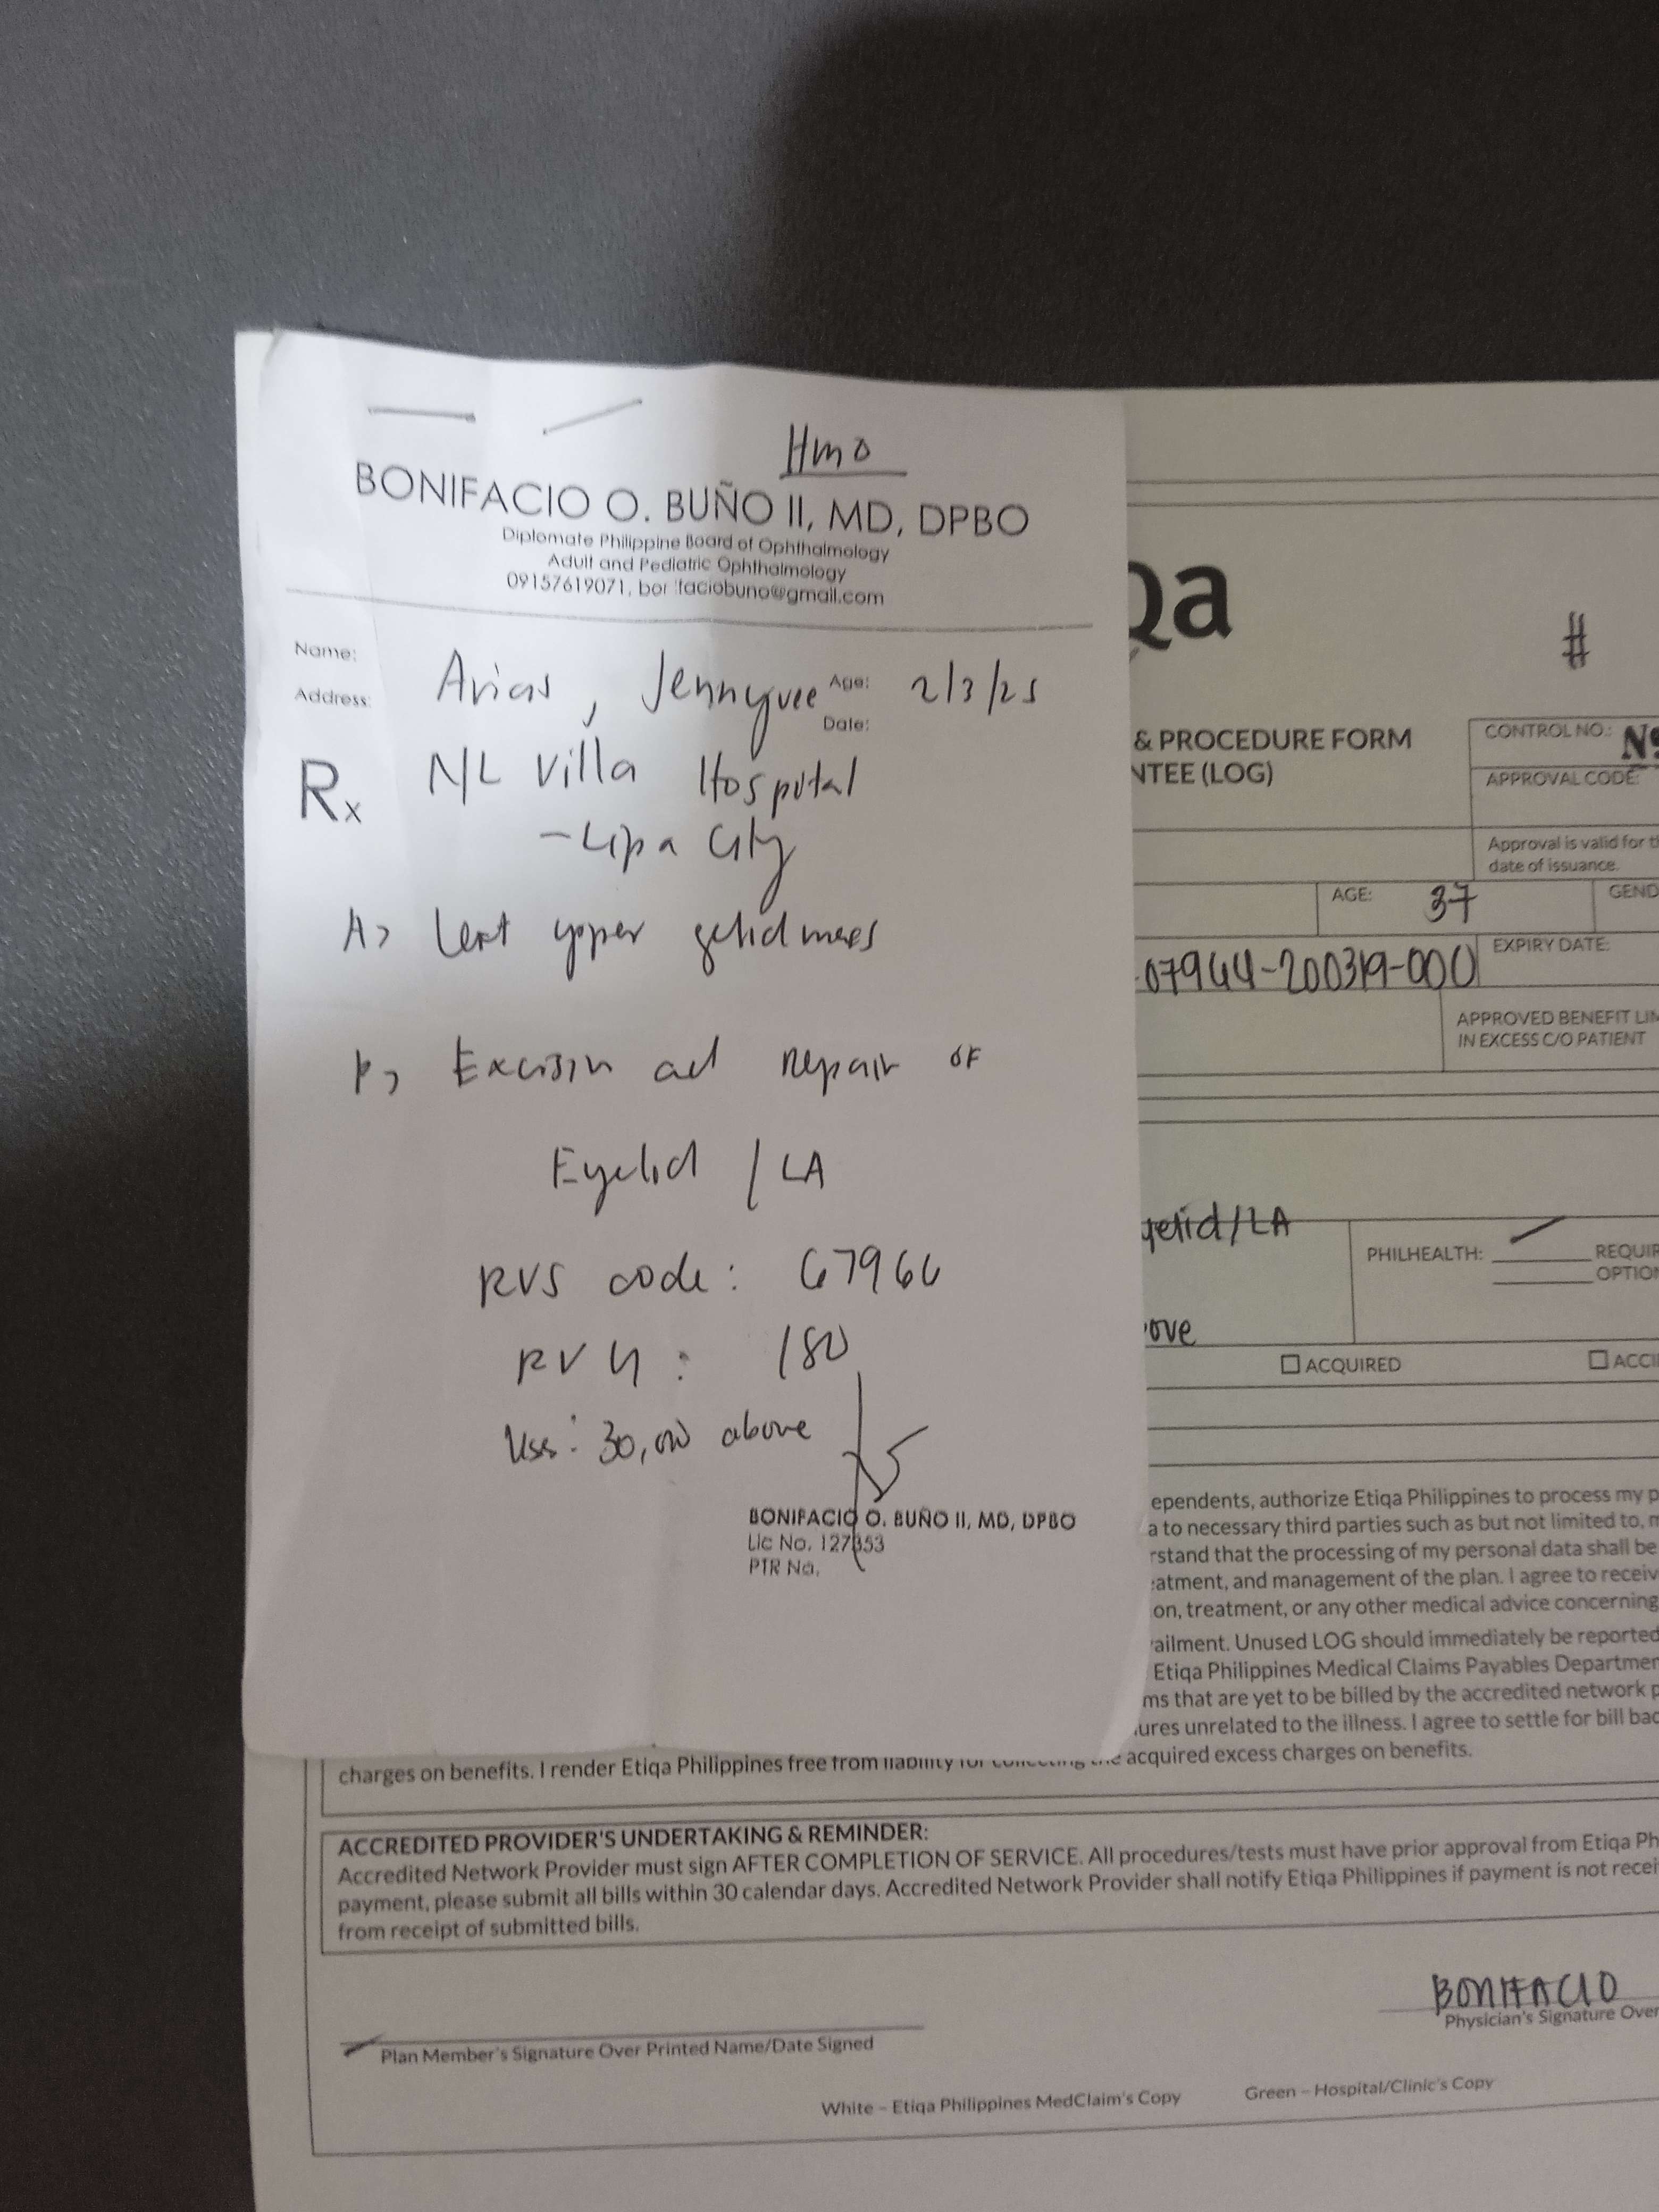 Hmo
BONIFACIO O. BUÑO II, MD, DPBO
Diplomate Philippine Board of Ophthalmology
Adult and Pediatric Ophthalmology
09157619071, bonifaciobuno@gmail.com
Name: Arias, Jennyvee Age: 2/3/25
Address: Date:
Rx N/L Villa Hospital
- Lipa City
A> Left upper eyelid mass
P> Excision and repair of
Eyelid / LA
RVS code: 67966
RVU: 180
Uss: 30,000 above
BONIFACIO O. BUÑO II, MD, DPBO
Lic No. 127353
PTR No.
Qa
#
& PROCEDURE FORM
NTEE (LOG)
CONTROL NO.: Nº
APPROVAL CODE:
Approval is valid for th
date of issuance.
AGE: 37
GEND
07944-200319-000
EXPIRY DATE:
APPROVED BENEFIT LIM
IN EXCESS C/O PATIENT
yelid/LA
PHILHEALTH:
REQUIR
OPTION
ove
☐ ACQUIRED ☐ ACCI
ependents, authorize Etiqa Philippines to process my p
a to necessary third parties such as but not limited to, m
rstand that the processing of my personal data shall be
eatment, and management of the plan. I agree to receiv
on, treatment, or any other medical advice concerning
ailment. Unused LOG should immediately be reported
Etiqa Philippines Medical Claims Payables Departmen
ms that are yet to be billed by the accredited network p
ures unrelated to the illness. I agree to settle for bill bac
charges on benefits. I render Etiqa Philippines free from liability for collecting the acquired excess charges on benefits.
ACCREDITED PROVIDER'S UNDERTAKING & REMINDER:
Accredited Network Provider must sign AFTER COMPLETION OF SERVICE. All procedures/tests must have prior approval from Etiqa Ph
payment, please submit all bills within 30 calendar days. Accredited Network Provider shall notify Etiqa Philippines if payment is not recei
from receipt of submitted bills.
BONIFACIO
Physician's Signature Over
Plan Member's Signature Over Printed Name/Date Signed
White – Etiqa Philippines MedClaim's Copy Green – Hospital/Clinic's Copy